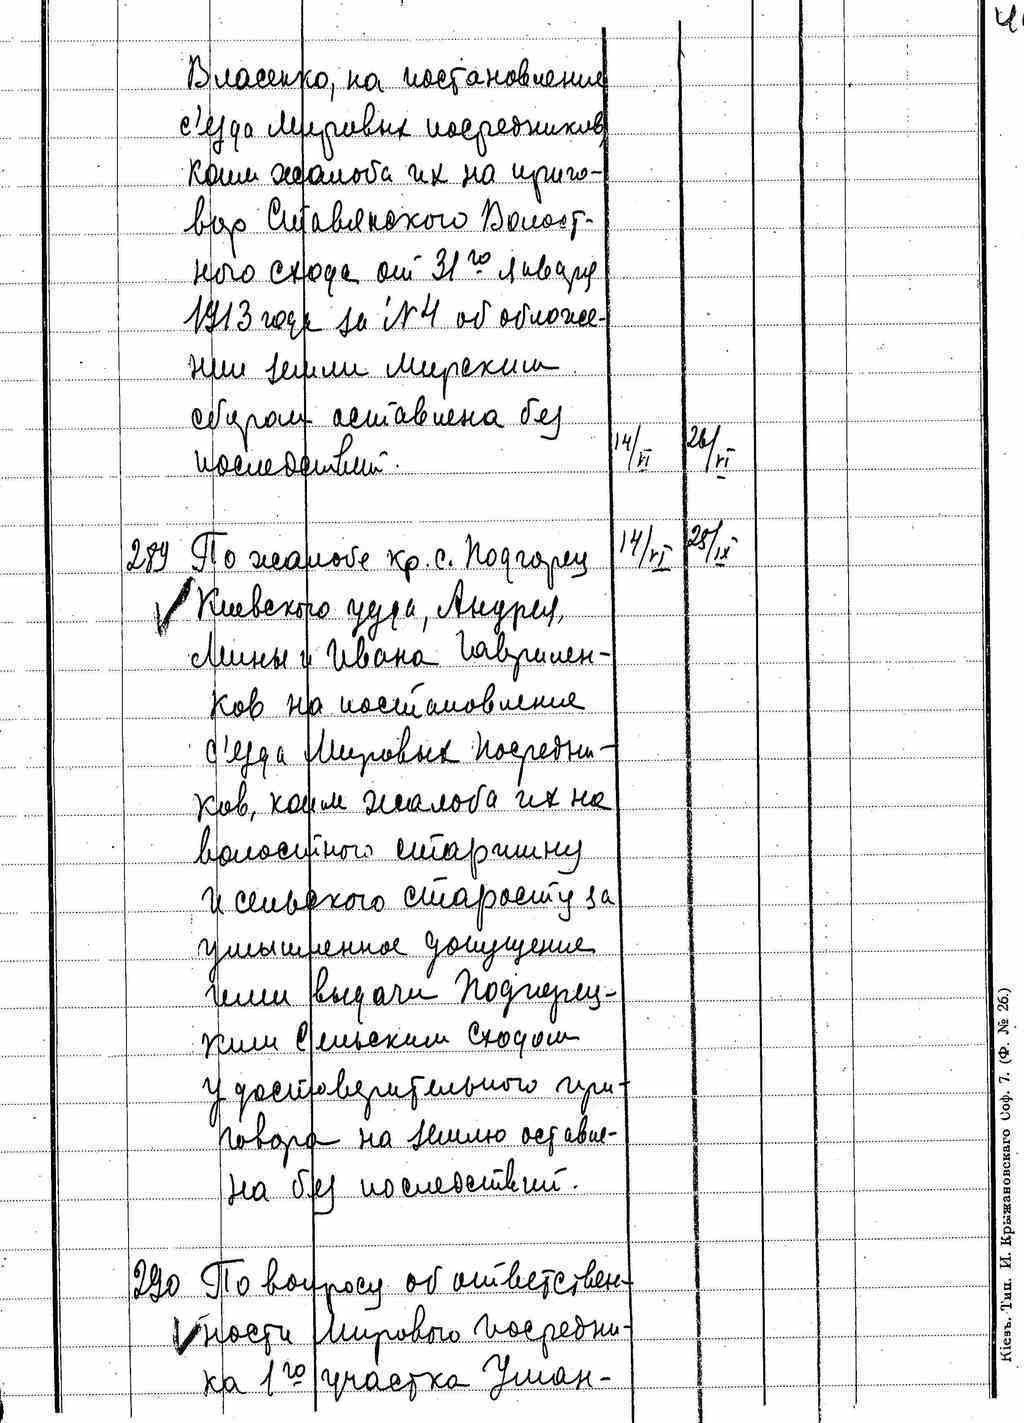 Власенко, на постановление
с'езда Мировых посредников,
коим жалоба их на приго-
вор Ставянского Волост-
ного схода от 31го Января
1913 года за №4 об обложе-
нии земли мирским
сбором оставлена без
последствий. 14/VI 26/VI
289 По жалобе кр. с. Подгорец 14/VI 28/IX
Киевского уезда, Андрея,
Мины и Ивана Гаврилен-
ков на постановление
с'езда Мировых Посредни-
ков, коим жалоба их на
волостного старшину
и сельского старосту за
умышленное допущение
ими выдачи Подгорец-
ким Сельским Сходом
удостоверительного при-
говора на землю оставле-
на без последствий.
290 По вопросу об ответствен-
ности Мирового посредни-
ка 1го участка Уман-
Кіевъ. Тип. И. Крыжановскаго Соф. 7. (Ф. № 26.)